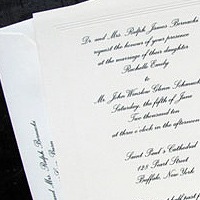 Dr. and Mrs. Ralph James Bernacki
request the honour of your presence
at the marriage of their daughter
Rachelle Emily
to
Mr. John Winslow Glenn
Saturday, the fifth of June
Two thousand ten
at three o'clock in the afternoon
Saint Paul's Cathedral
128 Pearl Street
Buffalo, New York
and Mrs. Ralph Bernacki